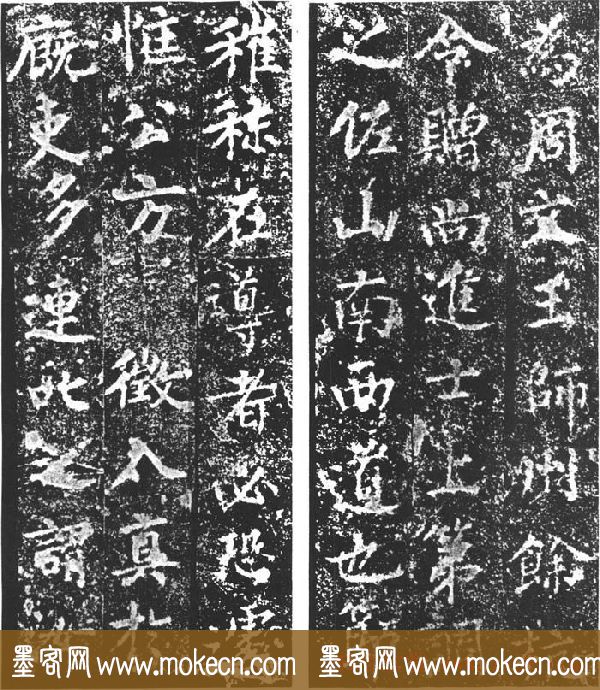 為周文王師州餘
令贈尚進士上第調
之佐山南西道也
稚秣在導者必恐
惟公方 徵入真
廄吏多連 之謂
墨客网 www.mokecn.com 墨客网 www.mokecn.com